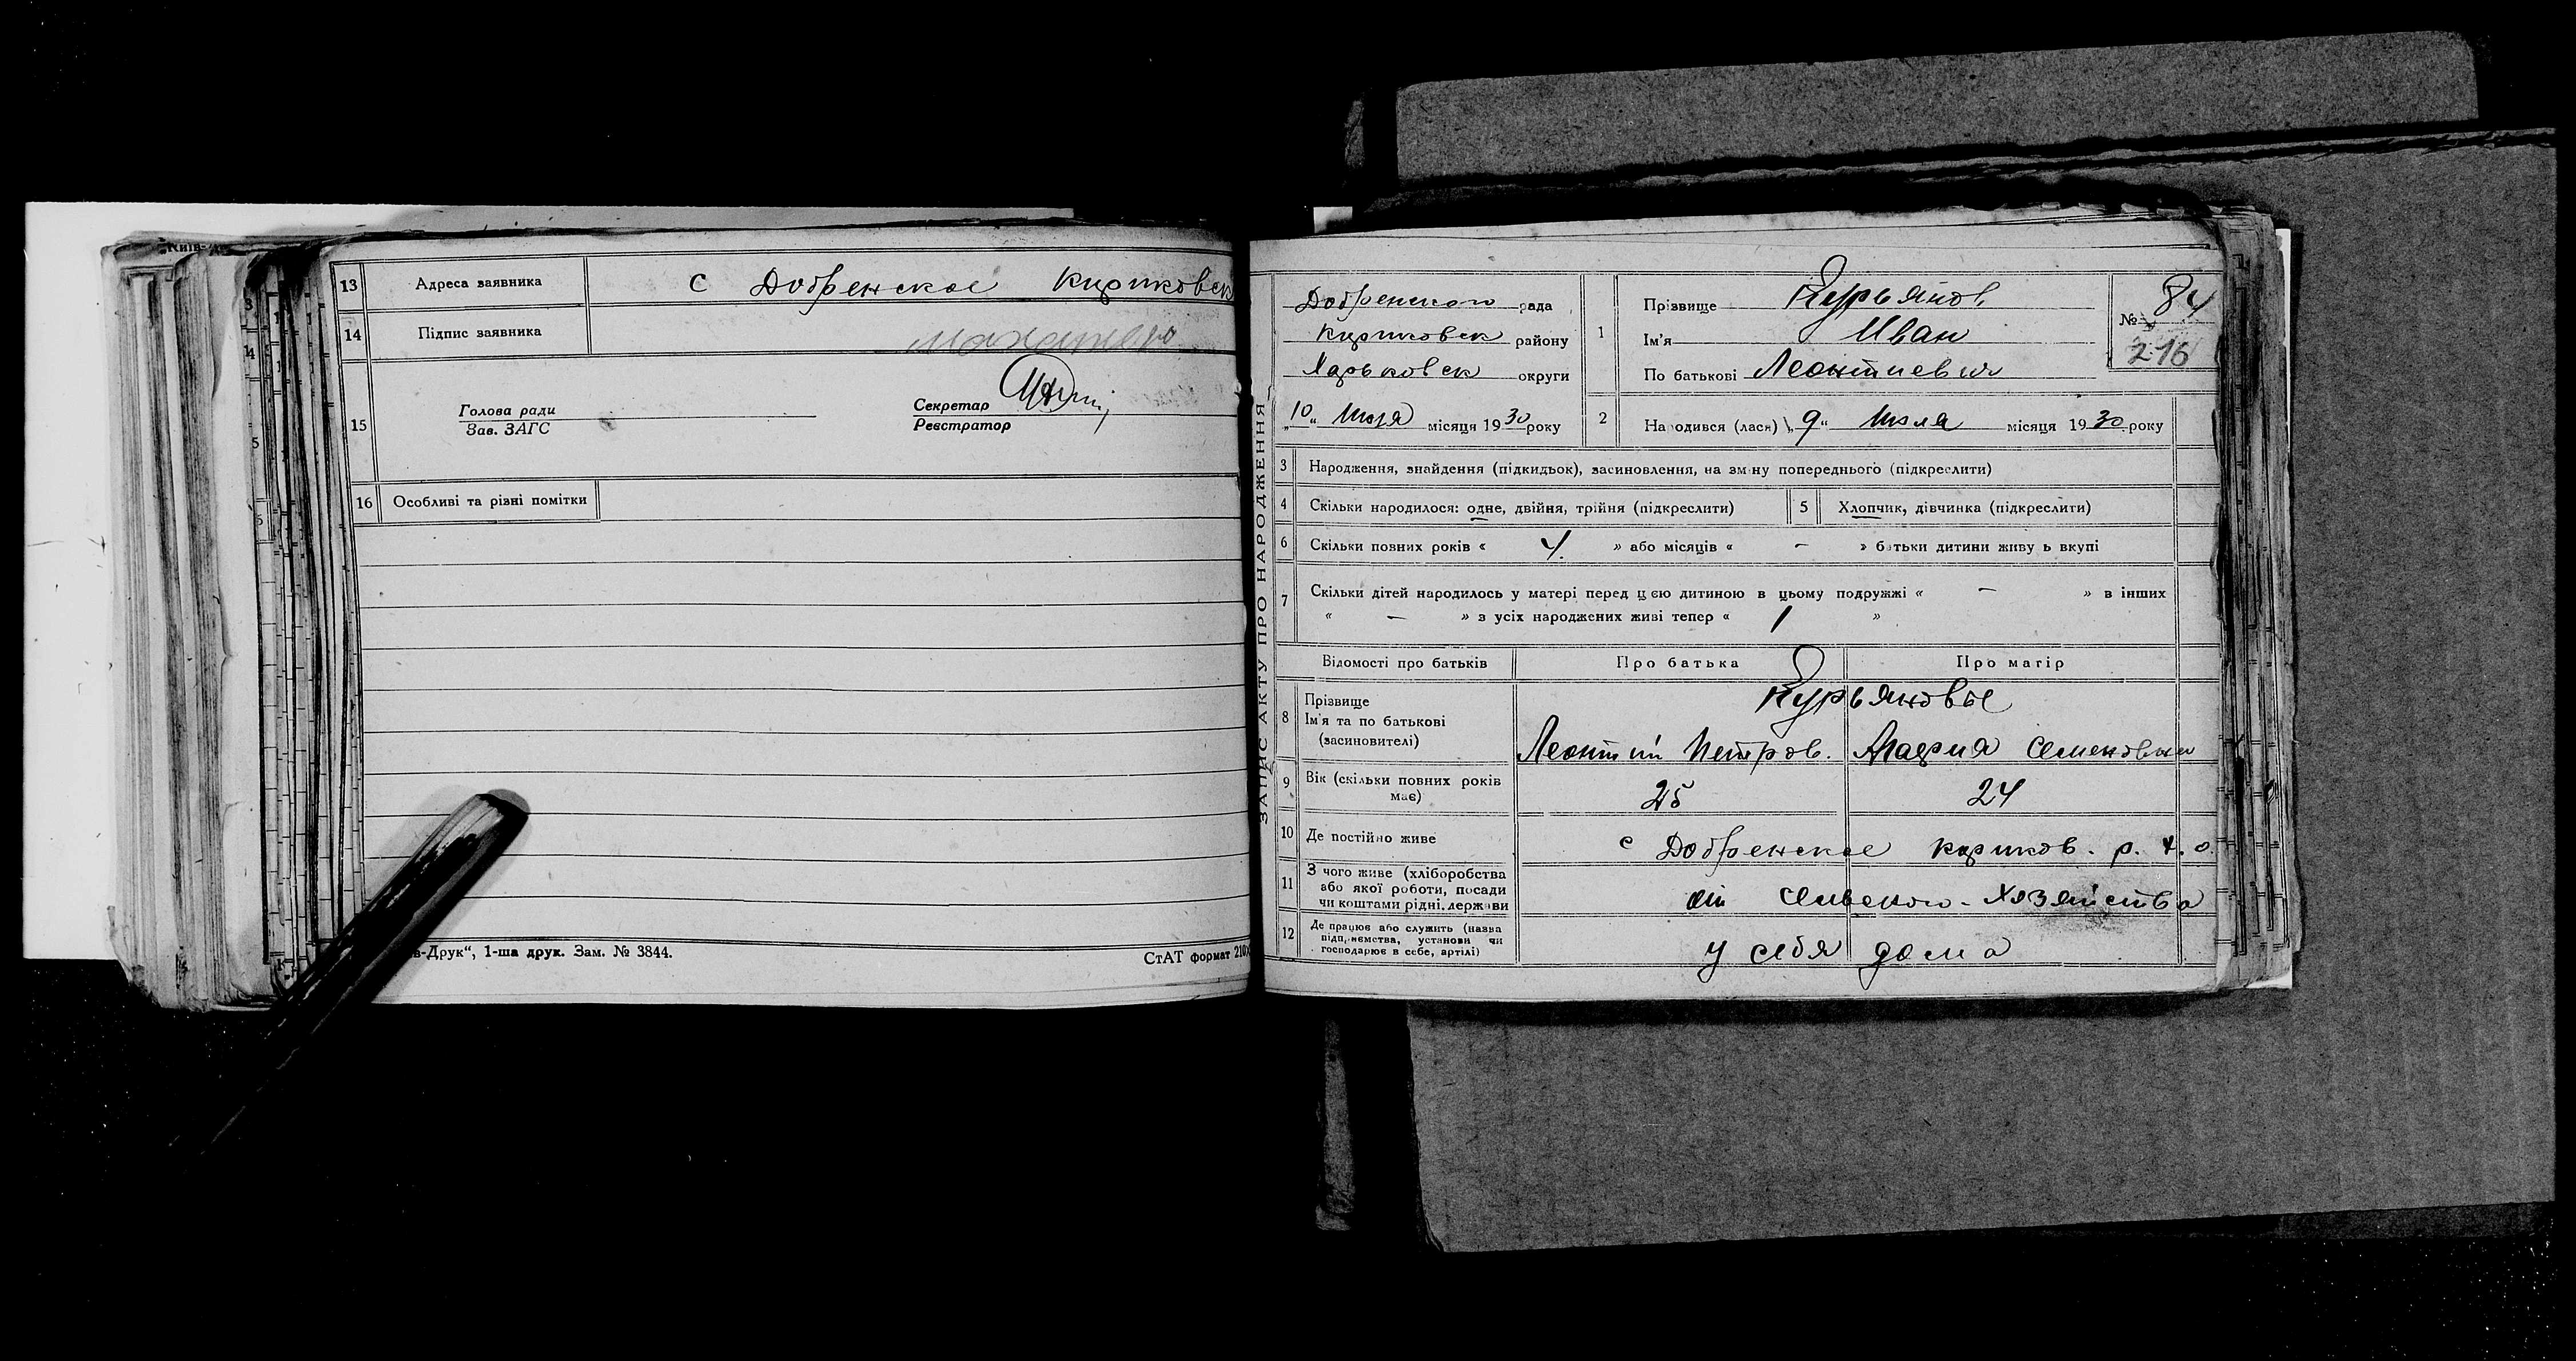 Київ-
13 Адреса заявника с Добренское Кириковск
14 Підпис заявника
15 Голова ради Секретар
Зав. ЗАГС Реєстратор
16 Особливі та різні помітки
в-Друк“, 1-ша друк. Зам. № 3844.
СтАТ формат 210
ЗАПИС АКТУ ПРО НАРОДЖЕННЯ
Добренской рада
Кириковск району
Харьковск округи
„10“ Июля місяця 1930 року
1 Прізвище Курьянов
Ім'я Иван
По батькові Леонтиевич
№ 84
216
2 Народився (лася) „9“ Июля місяця 1930 року
3 Народження, знайдення (підкидьок), засиновлення, на зміну попереднього (підкреслити)
4 Скільки народилося: одне, двійня, трійня (підкреслити) 5 Хлопчик, дівчинка (підкреслити)
6 Скільки повних років « 4 » або місяців « - » батьки дитини живуть вкупі
7 Скільки дітей народилось у матері перед цією дитиною в цьому подружжі « — » в інших
« — » з усіх народжених живі тепер « 1 »
Відомості про батьків Про батька Про матір
8 Прізвище Курьяновы
Ім'я та по батькові
(засиновителі) Леонтий Петров. Мария Семеновна
9 Вік (скільки повних років має) 25 24
10 Де постійно живе с Добренское Кириков. р. Х. о.
11 З чого живе (хліборобства
або якої роботи, посади
чи коштами рідні, держави от Сельского-Хозяйства
12 Де працює або служить (назва
підприємства, установи чи
господарює в себе, артілі) у себя дома